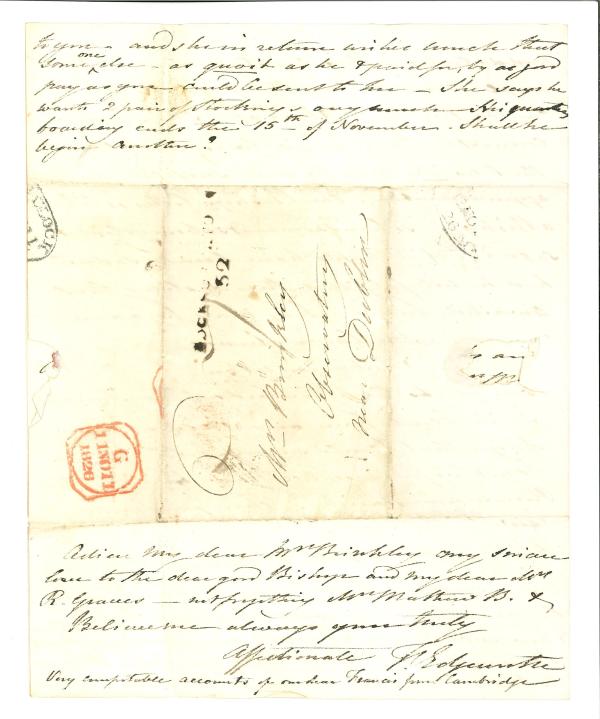 to you - and she in return wishes much that
some one else - as quoit as he & paid for, by as good
pay as you could be sent to her - She says he
wants 2 pair of stockings very much - His quarters
boarding ends the 15th of November - Shall he
begin another?
32
Mrs Brinkley
Observatory
near Dublin
G
11 NO 11
1826
Adieu my dear Mrs Brinkley my sincere
love to the dear good Bishop and my dear Mrs
R. Graves - not forgetting Mrs Mathew B. &
Believe me always your truly
Affectionate F. Edgeworth
Very comfortable accounts of our dear Francis from Cambridge